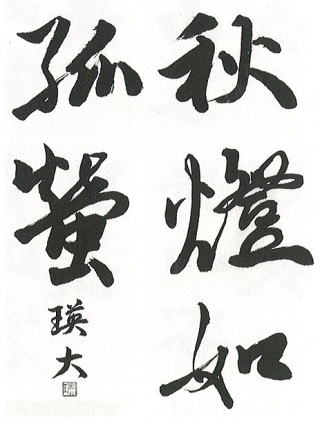 秋燈如
孤螢
瑛大